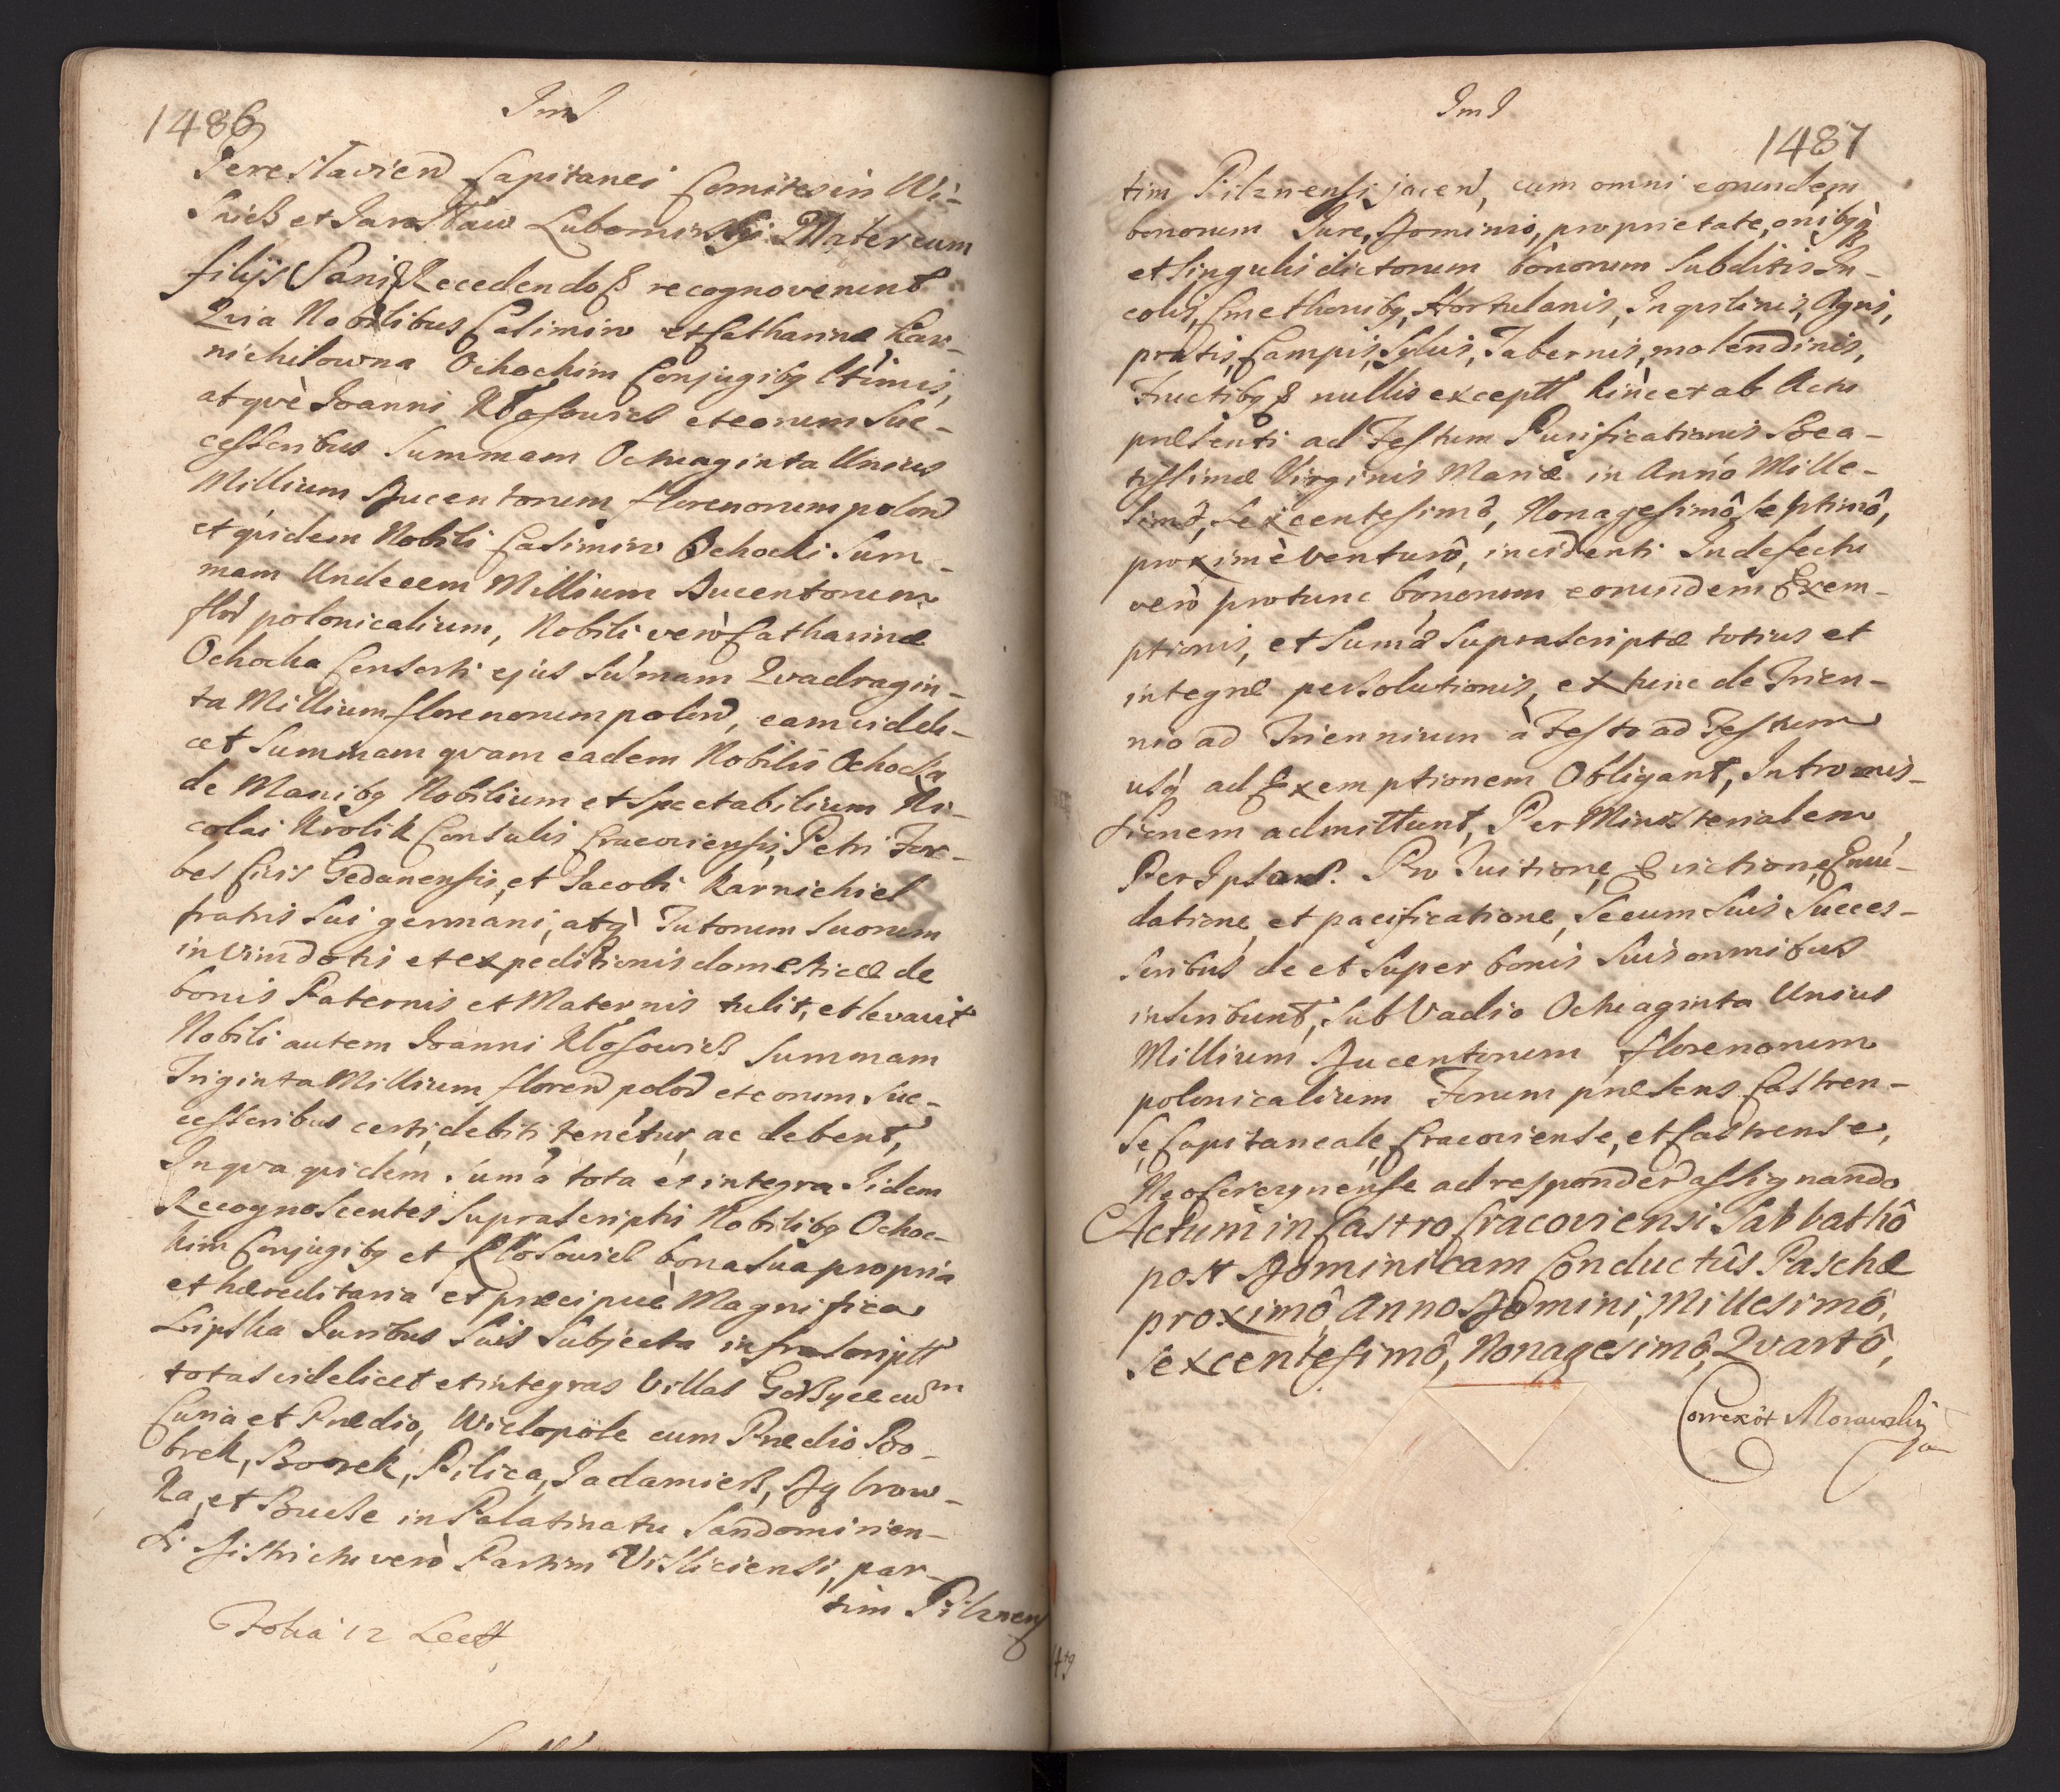 1486
Perestavien Capitanei Comites in Wi-
snicz et Jarosław Lubomirskji Mater cum
filijs Sani Recedendo recognoverunt
Quia Nobilibus Casimiro et Catharinæ Kar-
nichilowna Ochockim Conjugibq ltimis,
atqvè Joanni Kłosowicz et eorum Suc-
cessoribus Summam Octuaginta Unius
Millium Ducentorum florenorum polon
et qvidem Nobili Casimiro Ochocki Sum-
mam Undecem Millium Ducentorum
flor polonicalium, Nobili verò Catharinæ
Ochocka Consorti ejus Sumam Qvadragin-
ta Millium florenorum polon, eam videli-
cet Summam qvam eadem Nobilis Ochocka
de Manibq Nobilium et Spectabilium Ni-
colai Krolik Consulis Cracoviensis, Petri For-
bes Civis Gedanensis, et Jacobi Karnichiel
fratris Sui germani, atq Tutorum Suorum
in Vim dotis et expeditionis domesticæ de
bonis Paternis et Maternis tulit, et levavit
Nobili autem Joanni Kłosowicz Summam
Triginta Millium floren polon et eorum Suc-
cessoribus certi, debiti tenetur, ac debent,
In qva qvidem Suma tota et integra Iidem
Recognoscentes Suprascriptis Nobilibq Ochoc-
kim Conjugibq et Kłosowicz bona Sua propria
et hæreditaria et præcipuè Magnificæ
Lipska Juribus Suis Subjecta infrascriptt
totas videlicet et integras Villas Gorzyce cum
Curia et Prædio, Wielopole cum Prædio Bo-
brek, Borek, Pilica, Jadamierz, Dąbrow-
ka, et Brucze in Palatinatu Sandomirien-
si Districtu verò Partim Visliciensi, par-
tim Pilznens
Folia 12 Lectt
1487
tim Pilznensi jacen, cum omni eorundem
bonorum Jure, Dominio, proprietate, onibqq
et Singulis dictorum bonorum Subditis In-
colis, Cmethonibq, Hortulanis, Inqvilinis, Agris,
pratis, Campis, Sylvis, Tabernis, molendinis,
Fructibq nullis exceptt hinc et ab Actu
præsenti ad Festum Purificationis Bea-
tissimæ Virginis Mariæ in Anno Mille-
simô, Sexcentesimô, Nonagesimô Septimô,
proximè Venturô, incidenti In defectu
verò protunc bonorum eorundem Exem-
ptionis, et Sumæ Suprascriptæ totius et
integræ persolutionis, ex tunc de Trien-
nio ad Triennium à Festo ad Festum
usq ad Exemptionem Obligant, Intromis-
sionem admittunt, Per Ministerialem
Per Ipsam. Pro Tuitione, Evictione, Emun-
datione, et pacificatione, Secum Suis Succes-
soribus de et Super bonis Suis omnibus
inscribunt, Sub Vadio Octuaginta Unius
Millium Ducentorum florenorum
polonicalium Forum præsens Castren-
se, Capitaneale, Cracoviense, et Castrense,
Neoforczynense ad responden assignando
Actum in Castro Cracoviensi Sabbathô
post Dominicam Conductûs Paschæ
proximô, Anno Domini, Millesimô,
Sexcentesimô, Nonagesimô, Qvartô,
Correxit Morawski